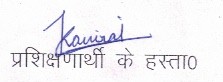 Kaviraj
प्रशिक्षणार्थी के हस्ता0